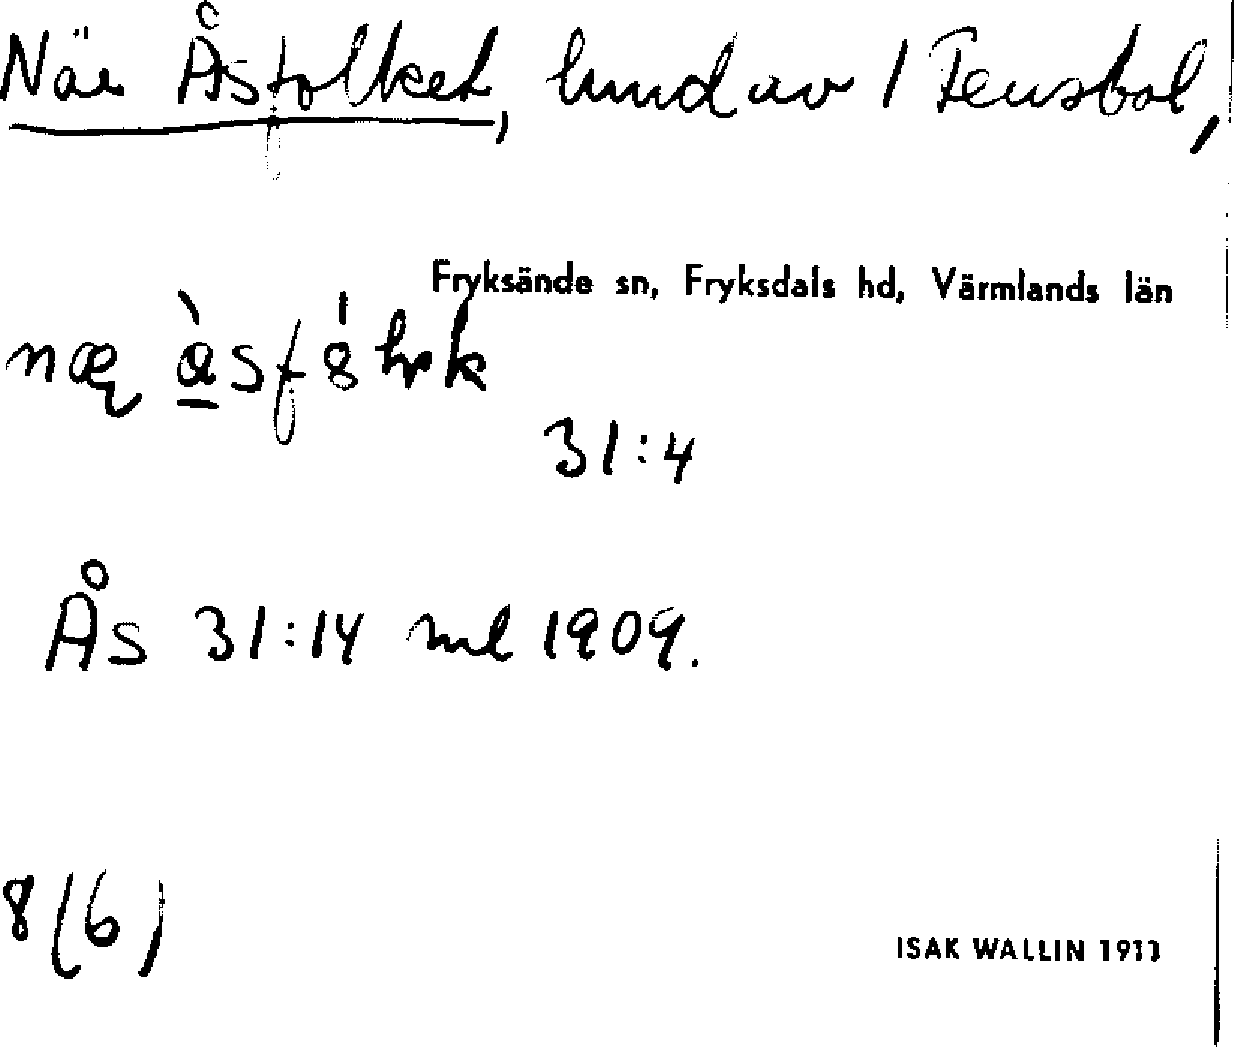 När Åsfolket, hmd av 1 Tensbol,
Fryksände sn, Fryksdals hd, Värmlands län
31:4
Ås 31:14 ml 1909.
8(6)
ISAK WALLIN 1911